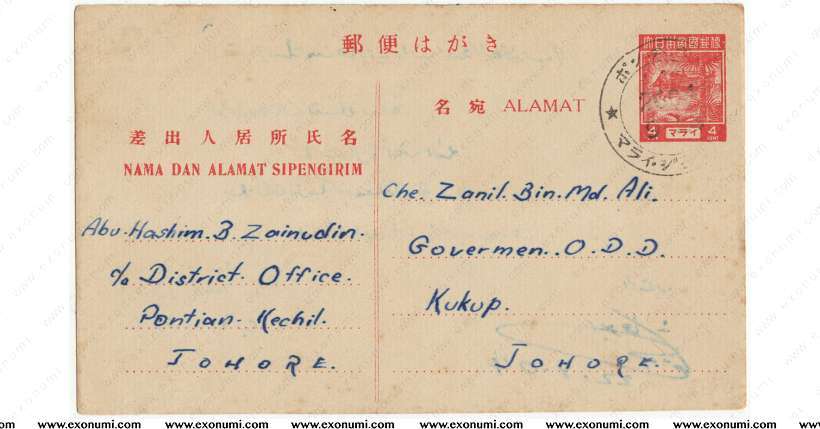 郵便はがき
大日本帝国郵便
4 マライ 4
CENT
名宛 ALAMAT
差出人居所氏名
NAMA DAN ALAMAT SIPENGIRIM
Abu. Hashim. B. Zainudin.
c/o District. Office.
Pontian. Kechil.
JOHORE.
Che. Zanil. Bin. Md. Ali.
Govermen. O. D. D.
Kukup.
JOHORE.
www.exonumi.com www.exonumi.com www.exonumi.com www.exonumi.com